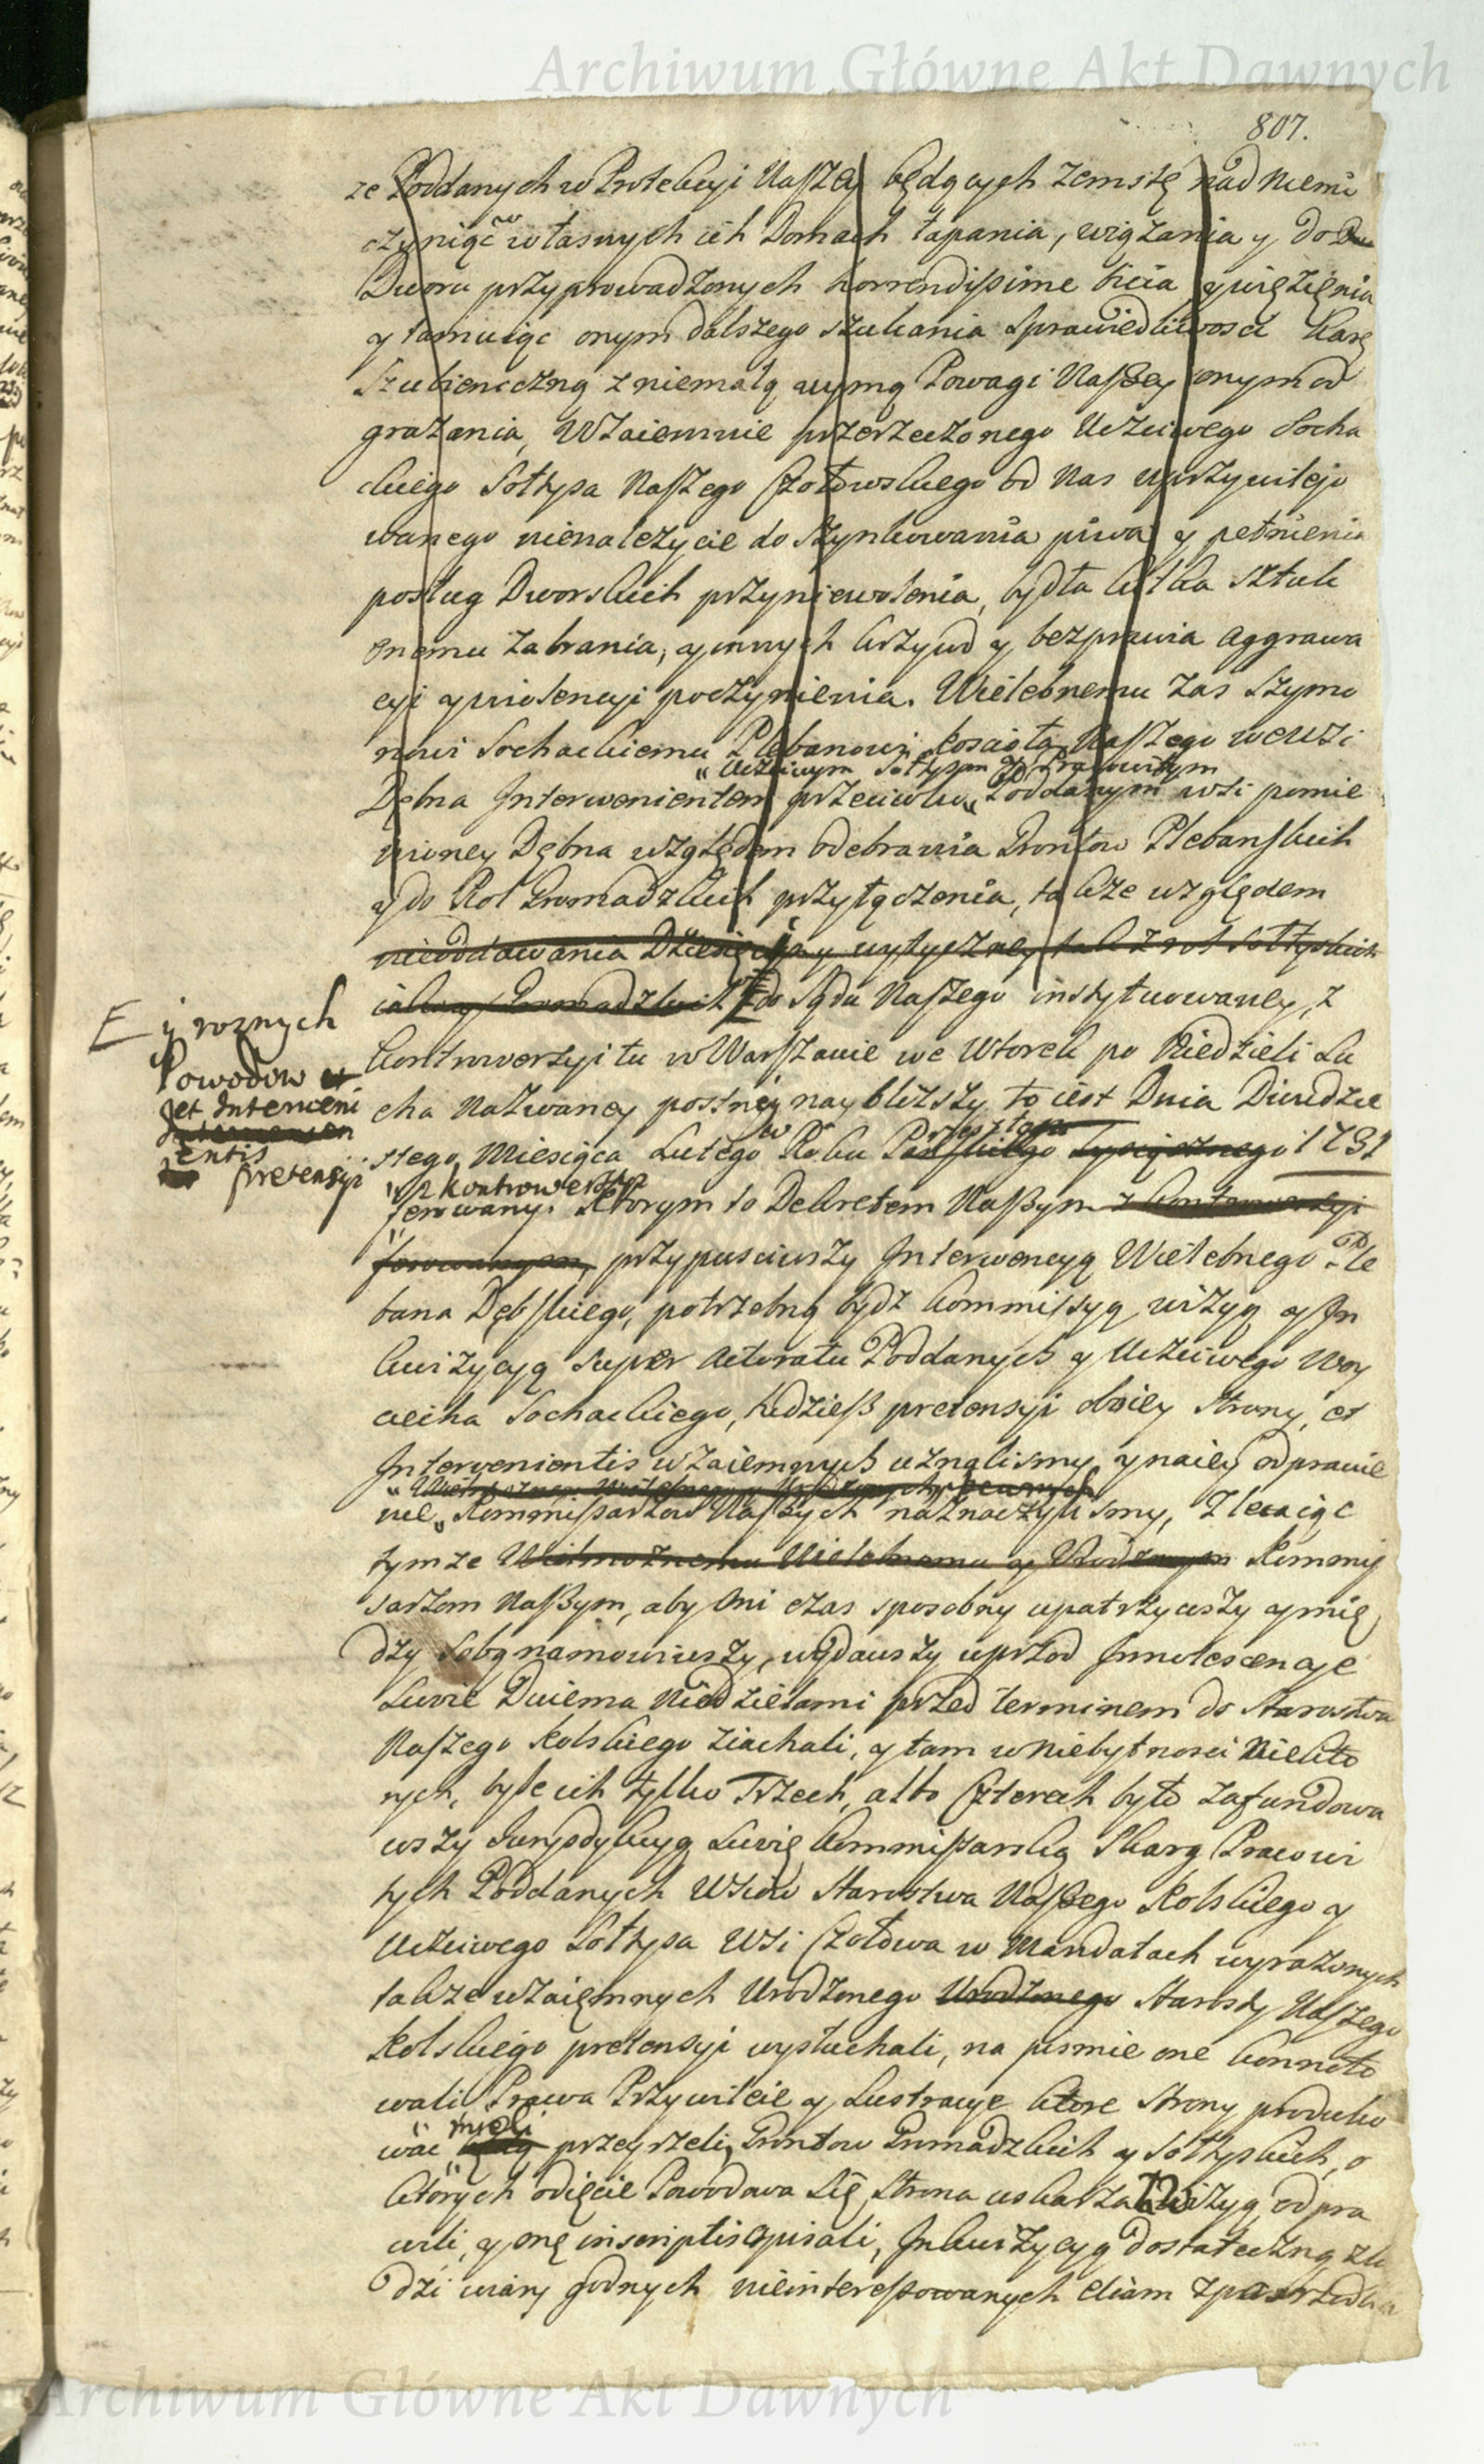 Archiwum Główne Akt Dawnych
807.
ze Poddanych w Protekcyi Naszey będących zemstę nad niemi
czyniąc w własnych ich Domach łapania, wiązania y do
Dworu przyprowadzonych horrendissime bicia y więzięnia
y tamuiąc onym dalszego szukania Sprawiedliwosci karę
Szubieniczną z niemałą uymą Powagi Naszey onym od
grażania, Wzaiemnie przerzeczonego Uczciwego Socha
ckiego Sołtysa Naszego Czołowskiego od Nas uprzywilejo
wanego nienależycie do szynkowania piwa y pełnienia
posług Dworskich przyniewolenia, bydła kilka sztuk
onemu zabrania, y innych krzywd y bezprawia aggrawa
cyi y wiolencyi poczynienia. Wielebnemu zas Szymo
nowi Sochackiemu Plebanowi koscioła Naszego we wsi
" Uczciwym Sołtysom y Pracowitym
Dębna Interwenientem przeciwko " Poddanym wsi pomie
nioney Dębna względem odebrania Gruntow Plebanskich
y do Rol Gromadzkich przyłączenia, także względem
nieoddawania Dziesięciny wytyczney tak z rol Sołtyskich
iako y Gromadzkich do Sądu Naszego instytuowaney, z
E y roznych
Powodow
et Interveni
entis
pretensyi
kontrowersyi tu w Warszawie we Wtorek po Niedzieli Łu
cha nazwaney postney naybliższy to iest Dnia Dwudzie
stego Miesiąca Lutego w Roku przeszłym Tysiącznego 1731
" z kontrowersyi
ferowany. Ktorym to Dekretem Naszym z kontrowersyi
ferowanym, przypusciwszy Interwencyą Wielebnego Ple
bana Dębskiego, potrzebną bydz kommissyą, wizyą y In
kwizycyą super Actoratu Poddanych y Uczciwego Woy
ciecha Sochackiego, tudziesz pretensyi obiey strony, et
Intervenientis wzaiemnych uznalismy, y na iey odprawie
nie " Kommissarzow Naszych naznaczylismy, zlecaiąc
tymze Wielmoznemu Wielebnemu y Urodzonym Kommis
sarzom Naszym, aby oni czas sposobny upatrzywszy y mię
dzy sobą namowiwszy, wydawszy uprzod Innotescencye
swoie Dwiema Niedzielami przed terminem do Starostwa
Naszego Kolskiego ziachali, y tam w niebytnosci niekto
rych, byle ich tylko Trzech, albo Czterech było zafundowa
wszy Jurysdykcyą swoię kommissarską Skarg Pracowi
tych Poddanych Wsiow Starostwa Naszego Kolskiego y
Uczciwego Sołtysa Wsi Czołowa w Mandatach wyrazonych
także wzaięmnych Urodzonego Urodzonego Starosty Naszego
Kolskiego pretensyi wysłuchali, na pismie one konnoto
wali, Prawa Przywileie y Lustracye ktore strony produko
" mieli
wac przeyrzeli, Gruntow Gromadzkich y Sołtyskich, o
ktorych odięcie Powodowa się Strona uskarza Wizyą odpra
wili, y onę in scriptis opisali, Inkwizycyą dostateczną z lu
dzi wiary godnych nieinteressowanych etiam z posrzodka
Archiwum Główne Akt Dawnych